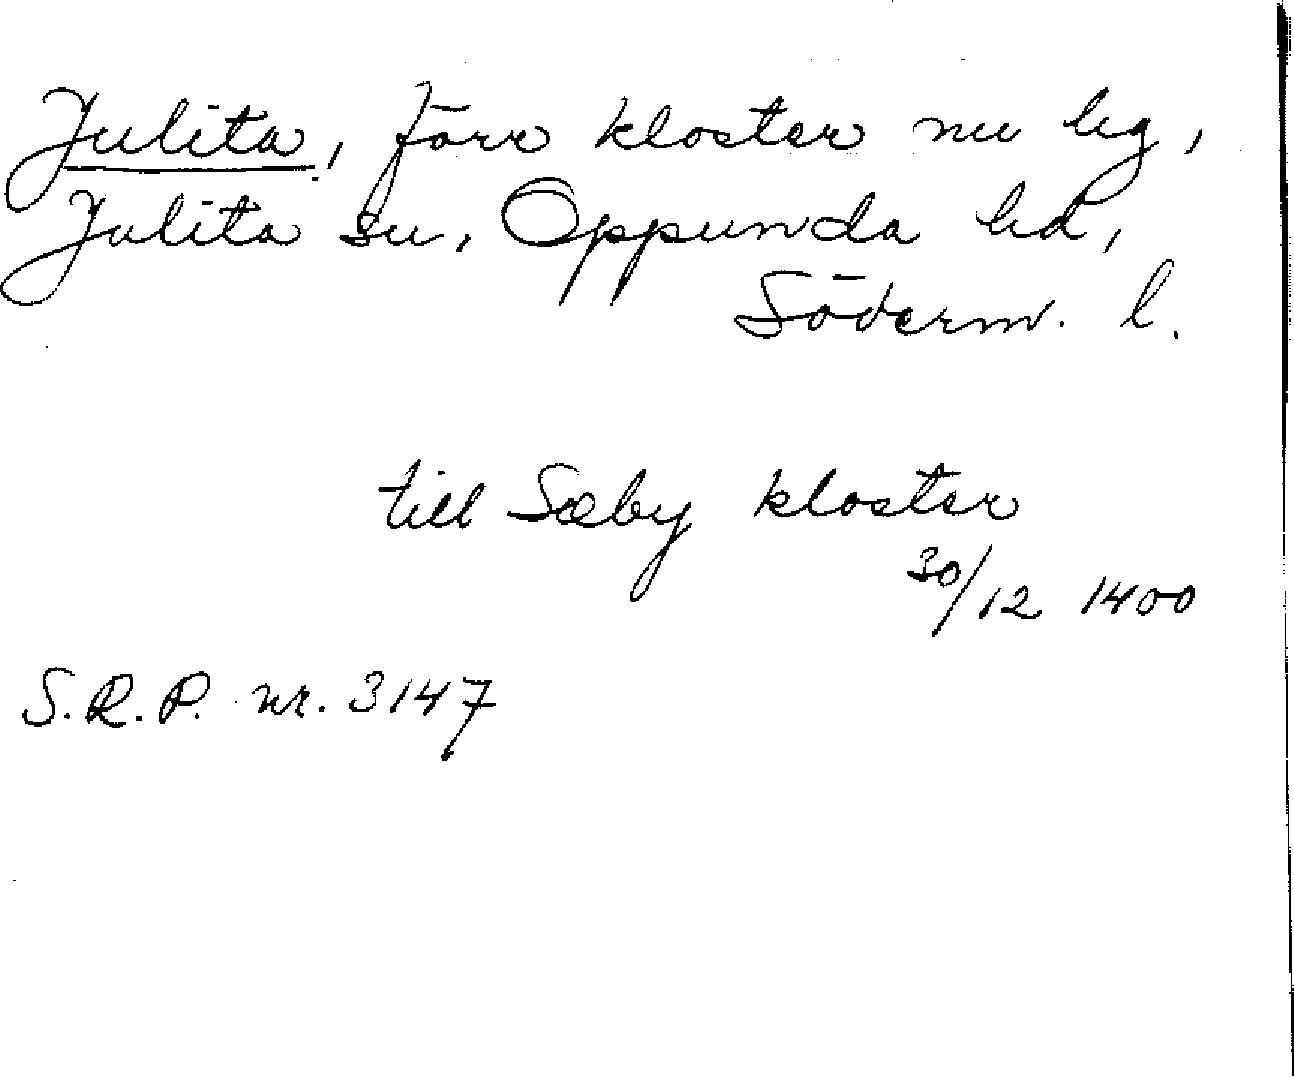 Julita, förr kloster nu hg,
Julita sn, Oppunda hd,
Söderm. l.
till Sæby kloster
30/12 1400
S.R.P. nr. 3147